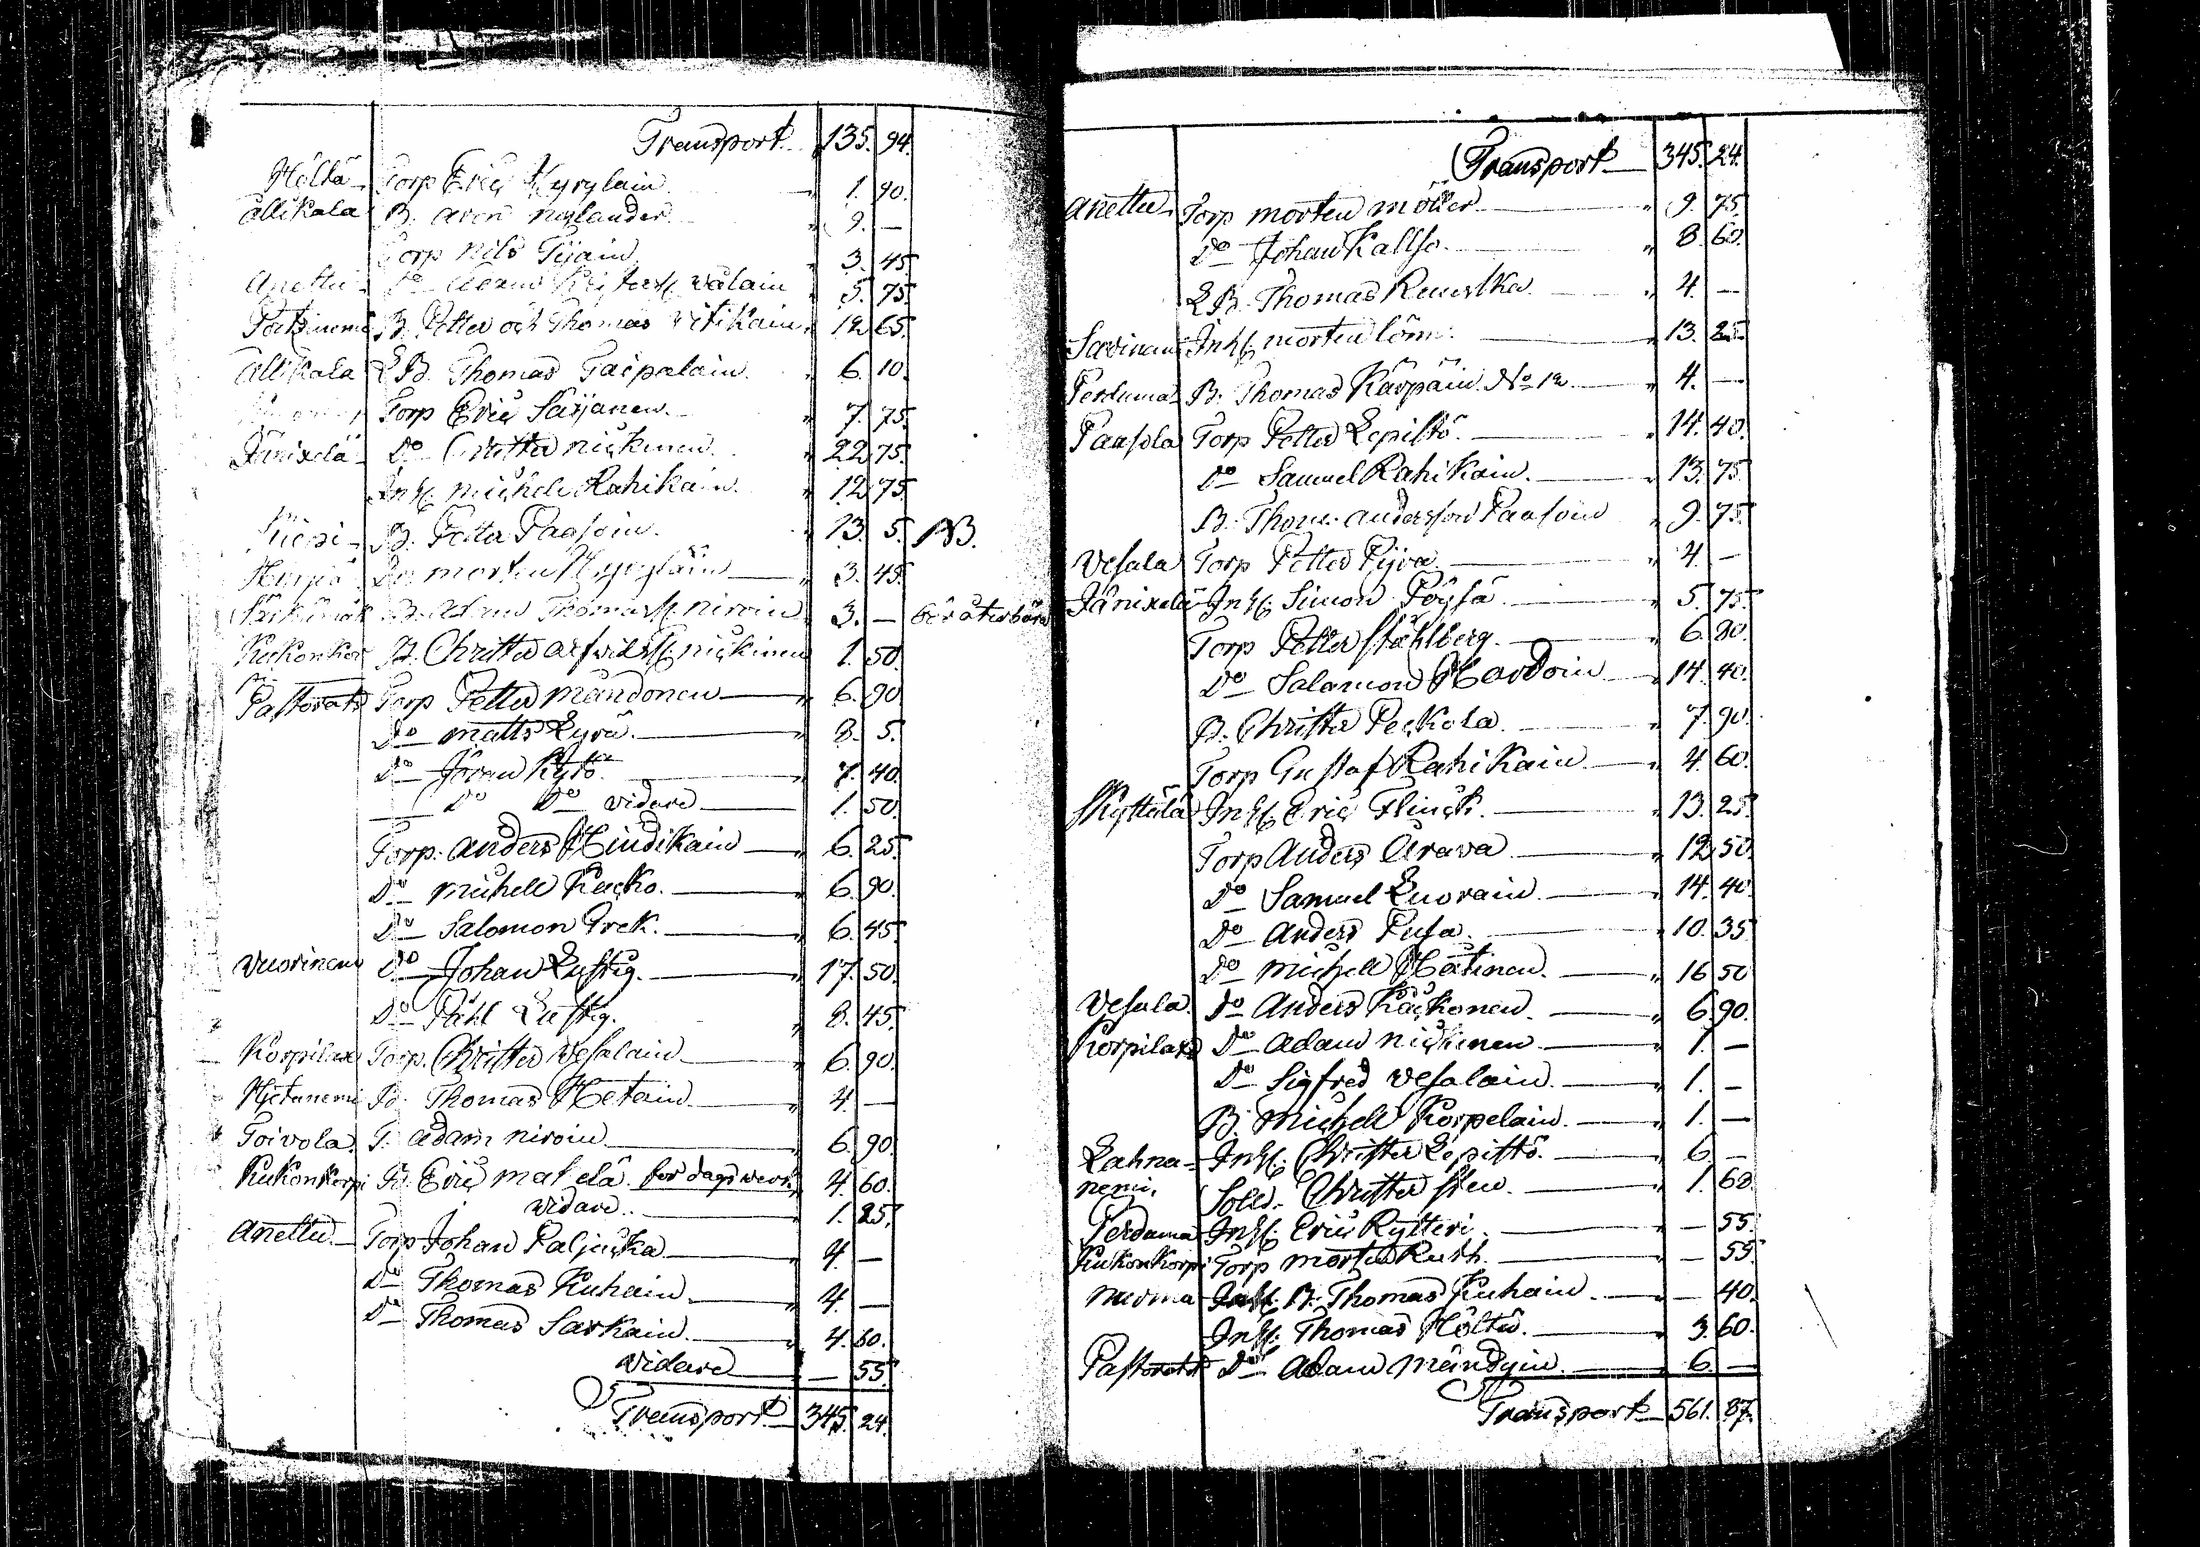 Transport 135. 94.
Höltä Torp Eric Kyrylain 1. 90.
Allikala B. Aron Nylander 9. —
Torp Nils Tijain 3. 45
Anettu Do Adam Wälain 5. 75.
B. Petter och Thomas Vitikain 12 65.
Allikala LB. Thomas Taipalain. 6. 10.
Torp Eric Sarjanen. 7. 75.
Jänixelä Do Christer Nickinen. 22 75.
Inhs. Michell Rahikain. 12 75.
B. Petter Paasoin. 13. 5. NB.
Do Morten Kyrylain 3. 45.
B. Adam Thomass. Niroin 3. — bör återbära
Kukonkor B. Christer Arfvidss. Nickinen 1. 50.
Pastorats Torp Petter Mändonen 6. 90
Do Matts Lyrä. 8. 5.
Do Jöran Kytö 7. 40.
Do Do vidare 1. 50
Torp. Anders Hindikain 6. 25.
Do Michell Kacko. 6. 90.
Do Salomon Grek. 6. 45.
Vuorinem Do Johan Lustig. 17. 50.
Do Påhl Lustig. 8. 45.
Korpilax Torp. Christer Vesalain 6. 90.
Hietanemi B. Thomas Hetain 4. —
Toivola. T. Adam Niroin 6. 90.
Kukonkorpi B. Eric Makelä för dagsverk 4. 60.
vidare. 1. 25.
Anettu Torp Johan Paljacka 4 —
Do Thomas Kuhain 4 —
Do Thomas Sarkain. 4. 60.
vidare — 55.
Transport 345. 24.
Transport 345. 24.
Anettu Torp Morten Möller 9. 75.
Do Johan Kallso. 8 60.
LB. Thomas 4. —
Savinam Inhs. Morten Löm. 13. 25
Perduma B. Thomas Kärpäin No 12 4. —
Paasola Torp Petter Lepistö. 14. 40.
Do Samuel Rahikain. 13. 75
B. Thom. Andersson Paasoin 9. 75.
Vesala Torp Petter Pijra 4. —
Jänixelä Inhs. Simon Pöysä. 5. 75.
Torp Petter Ståhlberg. 6. 80.
Do Salamon Hardoin 14. 40.
B. Christer Peckola. 7. 90.
Torp Gustaf Rahikain 4. 60.
Kyttälä Inhs. Eric Flinck. 13. 25
Torp Anders Orava 12 50
Do Samuel Luorain. 14. 40
Do Anders Pusa. 10. 35
Do Michell Hätinen. 16 50
Vesala. Do Anders Käckonen. 6. 90.
Korpilax Do Adam Nickinen 1. —
Do Sigfred Vesalain. 1. —
B. Michell Korpelain. 1. —
Lahna- Inhs. Christer Lepistö. 6 —
nemi. Sold. Christer Sten. 1. 60.
Perduma Inhs. Eric Rytteri. — 55.
Kukonkorpi Torp Morten Ruth. — 55.
B. Thomas Kuhain. — 40.
Inhs. Thomas Höltä. 3. 60.
Pastorats Do Adam Mändyin. 6. —
Transport 561. 87.